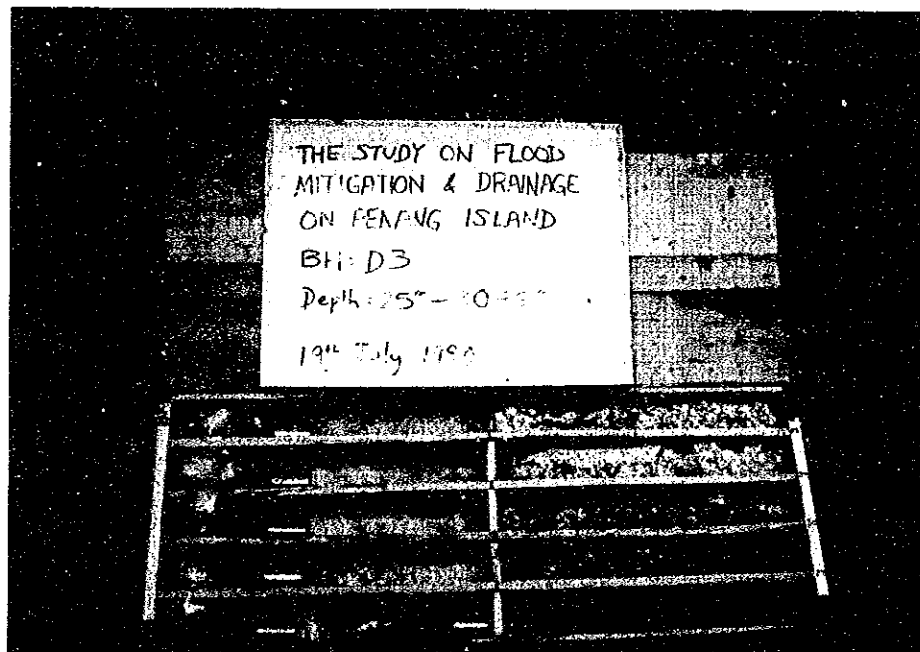 THE STUDY ON FLOOD
MITIGATION & DRAINAGE
ON PENANG ISLAND
BH: D3
Depth: 25m –
19th July 1990